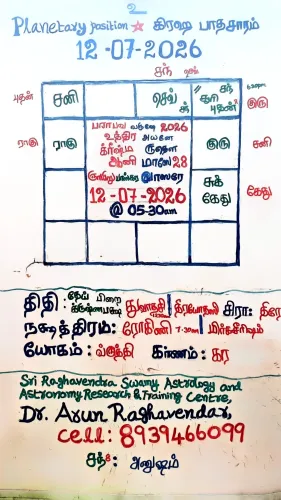 உ
Planetary position ☆ கிரஹ பாதசாரம்
12-07-2026
புதன்
சனி
செவ்
குரு
ராகு
ராகு
பராபவ வருஷ 2026
உத்திர அயனே
கிரீஷ்ம ருதௌ
ஆனி மாஸை 28
வாஸரே
12-07-2026
@ 05:30am
சனி
சுக்
கேது
கேது
திதி: தேய் பிறை
கிருஷ்ணபக்ஷ துவாதசி / த்ரயோதசி
நக்ஷத்திரம்: ரோகிணி 7:30am / மிருகசீரிஷம்
யோகம்:
கரணம்: கர
Sri Raghavendra Swamy Astrology and
Astronomy Research & Training Centre,
Dr. Arun Raghavendar,
cell: 8939466099
அனுஷம்